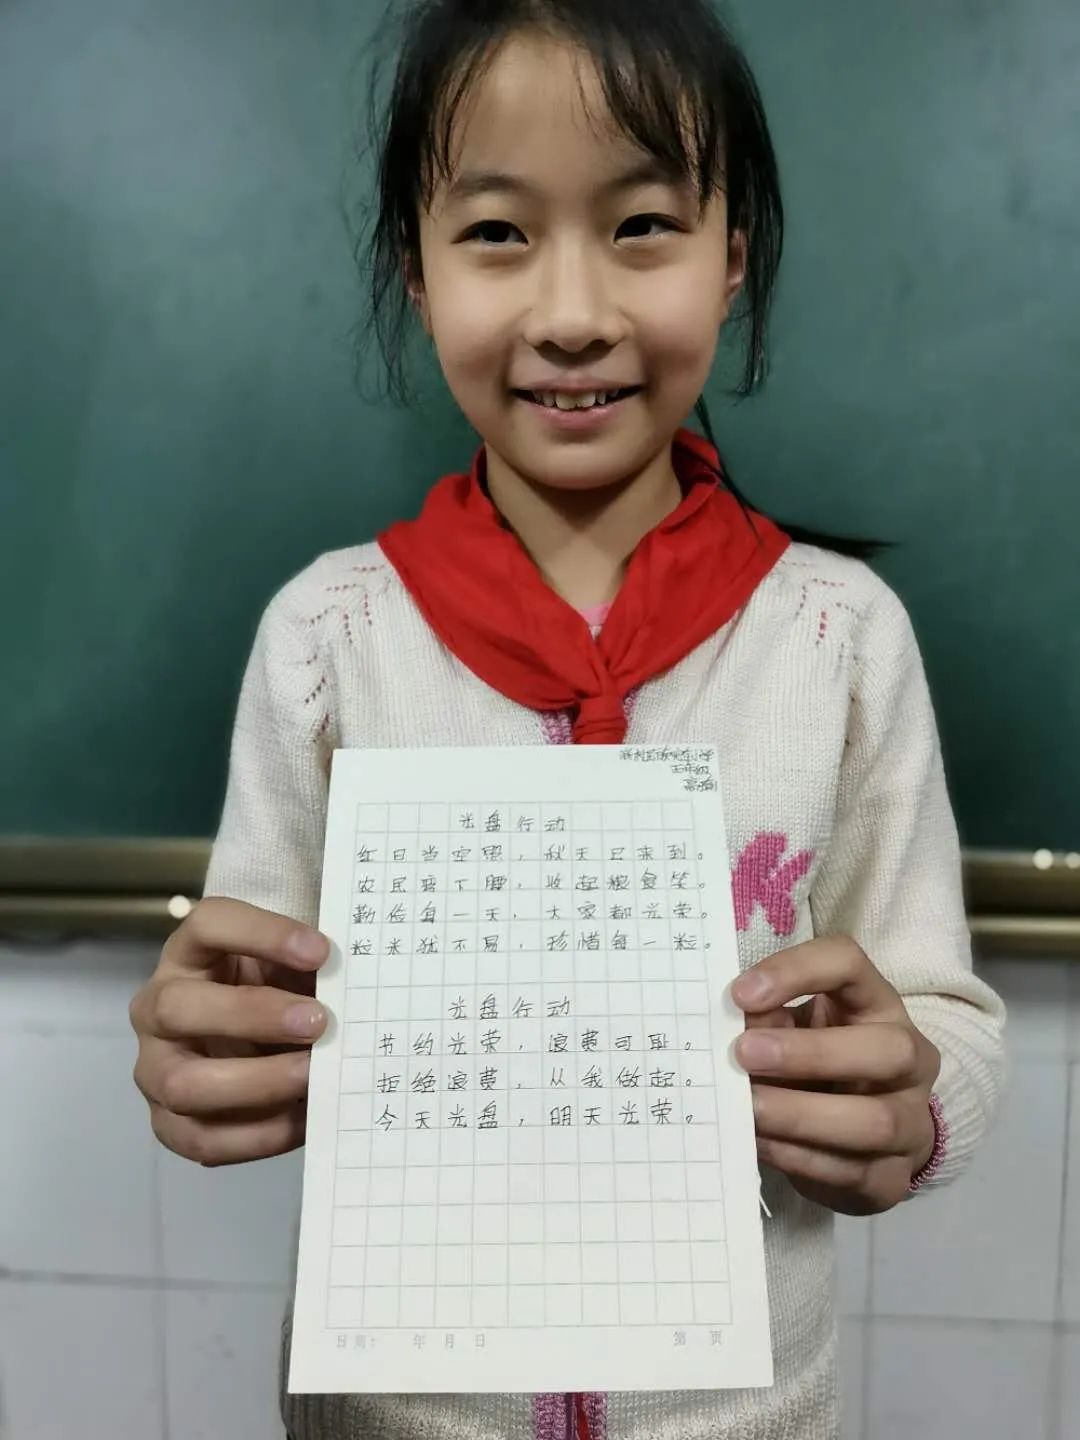 小学
五年级
光盘行动
红日当空照，秋天已来到。
农民弯下腰，收起粮食笑。
勤俭每一天，大家都光荣。
粒米犹不易，珍惜每一粒。
光盘行动
节约光荣，浪费可耻。
拒绝浪费，从我做起。
今天光盘，明天光荣。
日期： 年 月 日 第 页
K